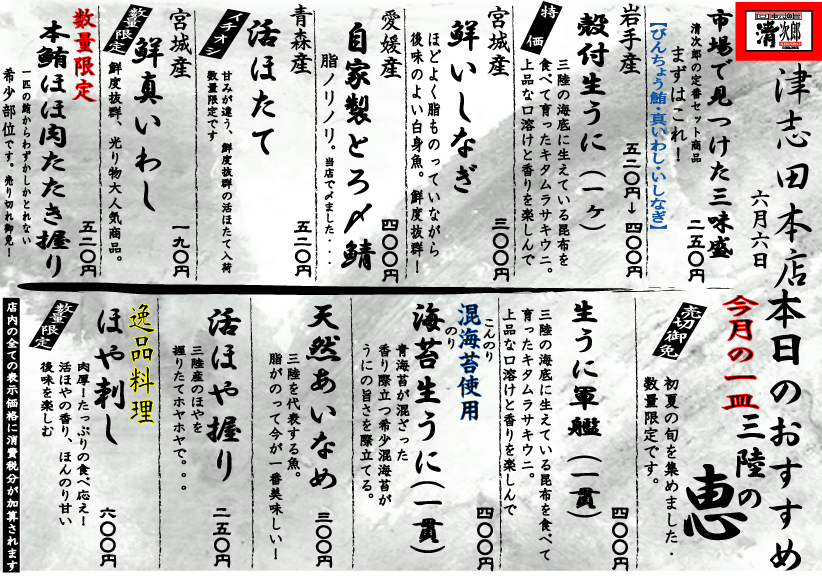 清次郎
津志田本店
六月六日
本日のおすすめ
市場で見つけた三味盛
清次郎の定番セット商品
まずはこれ！
二五〇円
【びんちょう鮪・真いわし・いしなぎ】
岩手産
特価
殻付生うに（一ヶ）
五二〇円→四〇〇円
三陸の海底に生えている昆布を
食べて育ったキタムラサキウニ。
上品な口溶けと香りを楽しんで
宮城産
鮮いしなぎ
三〇〇円
ほどよく脂ものっていながら
後味のよい白身魚。鮮度抜群！
愛媛産
自家製とろ〆鯖
四〇〇円
脂ノリノリ。当店で〆ました・・・
青森産
イチオシ
活ほたて
五二〇円
甘みが違う、鮮度抜群の活ほたて入荷
数量限定です
宮城産
数量限定
鮮真いわし
一九〇円
鮮度抜群、光り物大人気商品。
数量限定
本鮪ほほ肉たたき握り
五二〇円
一匹の鮪からわずかしかとれない
希少部位です。売り切れ御免！
今月の一皿
三陸の
恵
売切御免
初夏の旬を集めました・
数量限定です。
生うに軍艦（一貫）
四〇〇円
三陸の海底に生えている昆布を食べて
育ったキタムラサキウニ。
上品な口溶けと香りを楽しんで
こんのり
混海苔使用
のり
海苔生うに（一貫）
四〇〇円
青海苔が混ざった
香り際立つ希少混海苔が
うにの旨さを際立てる。
天然あいなめ
三〇〇円
三陸を代表する魚。
脂がのって今が一番美味しい！
活ほや握り
二五〇円
三陸産のほやを
握りたてホヤホヤで。。。
逸品料理
数量限定
ほや刺し
六〇〇円
肉厚！たっぷりの食べ応え！
活ほやの香り、ほんのり甘い
後味を楽しむ
店内の全ての表示価格に消費税分が加算されます